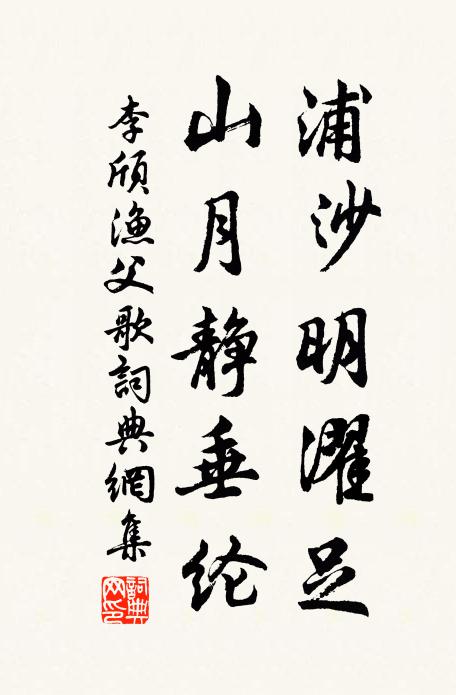 浦沙明濯足
山月静垂纶
李颀渔父歌詞典網集
詞典网印